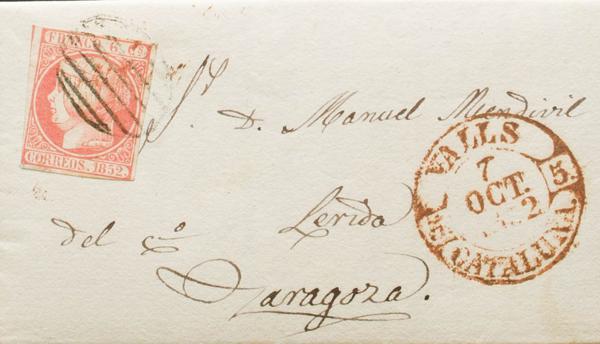 FRANCO 6 Cs
CORREOS. 1852.
Sr. D. Manuel Mendivil
Lerida
del Co
Zaragoza.
VALLS
7
OCT.
1852
5.
CATALUÑA